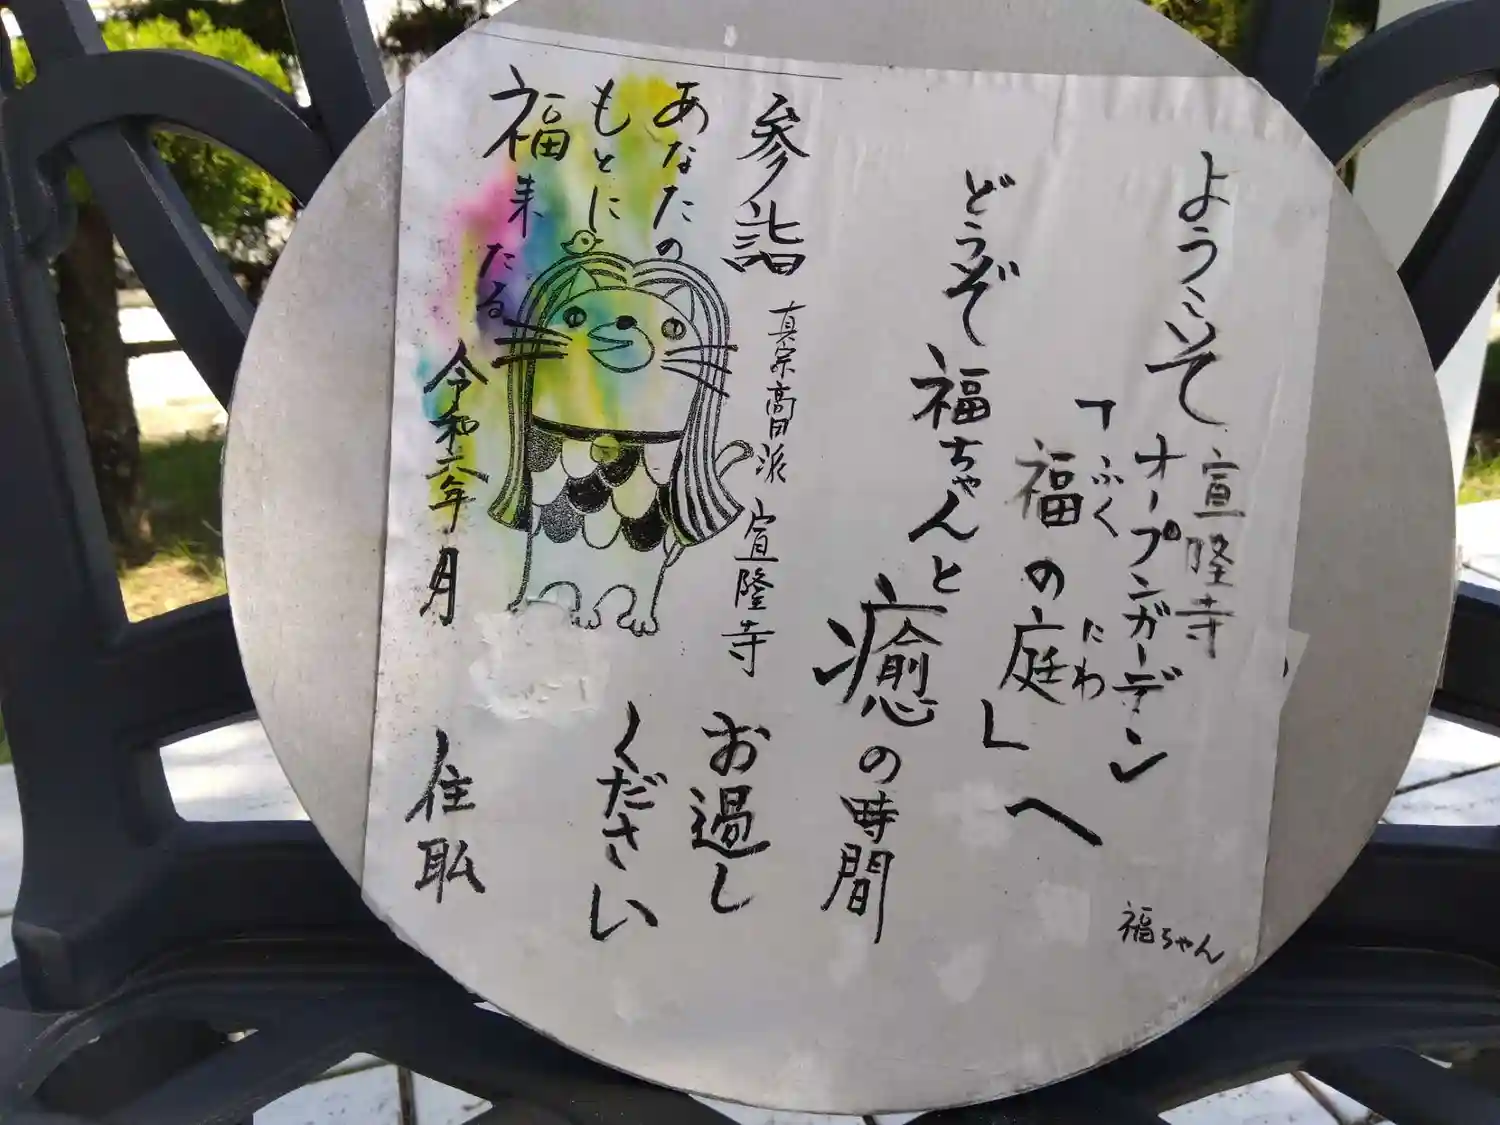 ようこいて
宣隆寺
オープンガーデン
「福の庭」へ
ふく
にわ
どうぞ福ちゃんと
癒の時間
お過し
ください
福ちゃん
参詣
真宗高田派 宣隆寺
あなたの
もとに
福来たる
令和六年 月
住职